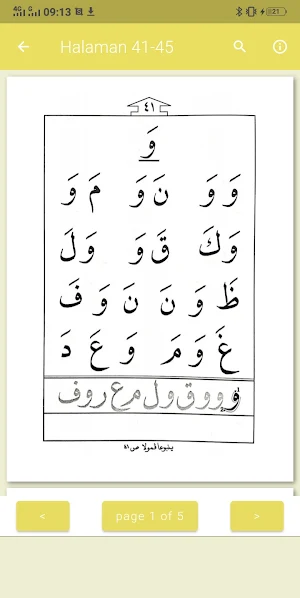 4G G 09:13 21
Halaman 41-45
٤١
وَ
وَ وَ نَ وَ مَ وَ
وَ كَ قَ وَ وَ لَ
ظَ وَ نَ نَ وَ فَ
غَ وَ مَ وَ عَ دَ
و و و ق و ل م ع ر و ف
ينبوعا قمولا ص ٤١
< page 1 of 5 >